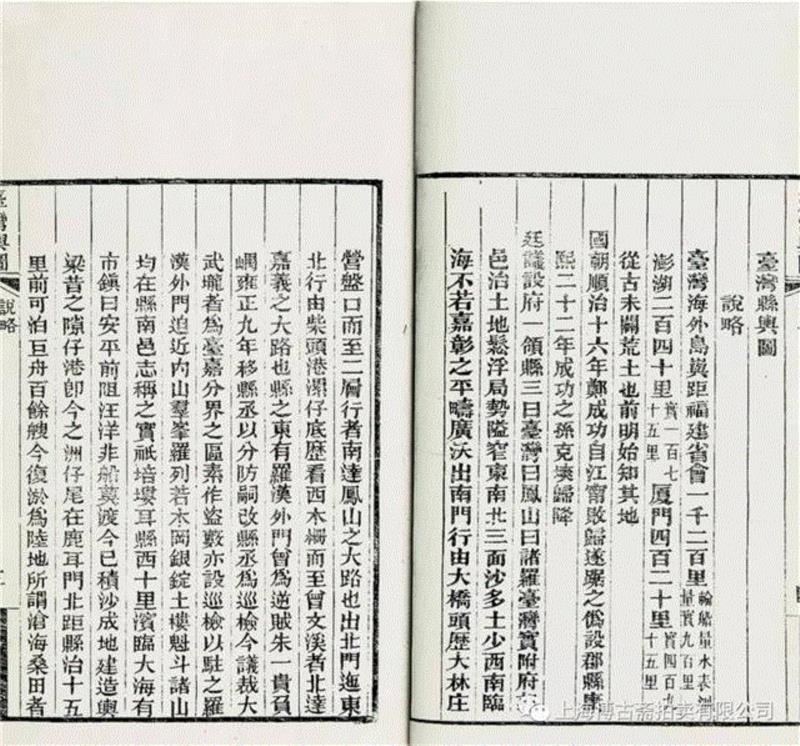 臺灣縣輿圖
說略
臺灣海外島嶼距福建省會一千二百里輪船量水表測量實九百里
澎湖二百四十里實一百七十五里厦門四百二十里實四百九十五里
從古未闢荒土也前明始知其地
國朝順治十六年鄭成功自江甯敗歸遂踞之僞設郡縣康
熙二十二年成功之孫克塽歸降
廷議設府一領縣三曰臺灣曰鳳山曰諸羅臺灣實附府
邑治土地鬆浮局勢隘窄東南北三面沙多土少西南臨
海不若嘉彰之平疇廣沃出南門行由大橋頭歷大林庄
營盤口而至二層行者南達鳳山之大路也出北門迤東
北行由柴頭港渠仔底歷看西木柵而至曾文溪者北達
嘉義之大路也縣之東有羅漢外門曾爲逆賊朱一貴負
嵎雍正九年移縣丞以分防嗣改縣丞爲巡檢今議裁大
武壠者爲臺嘉分界之區素作盜藪亦設巡檢以駐之羅
漢外門迫近內山羣峯羅列若木岡銀錠土樓魁斗諸山
均在縣南邑志稱之實祇培塿耳縣西十里濱臨大海有
市鎮曰安平前阻汪洋非船莫渡今已積沙成地建造輿
梁昔之隙仔港卽今之洲仔尾在鹿耳門北距縣治十五
里前可泊巨舟百餘艘今復淤爲陸地所謂滄海桑田者
臺灣輿圖
說略
上海博古斋拍卖有限公司